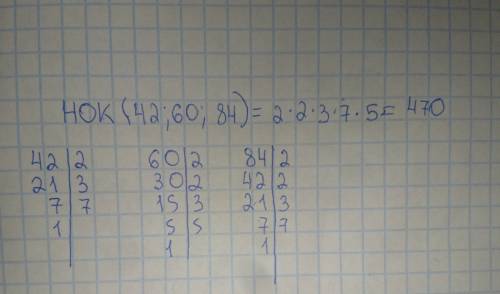 НОК (42; 60; 84) = 2·2·3·7·5 = 470
42 | 2 60 | 2 84 | 2
21 | 3 30 | 2 42 | 2
7 | 7 15 | 3 21 | 3
1 | 5 | 5 7 | 7
1 | 1 |